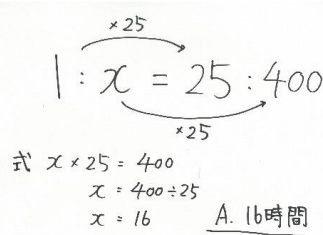 ×25
1 : x = 25 : 400
×25
式 x × 25 = 400
x = 400 ÷ 25
x = 16
A. 16時間